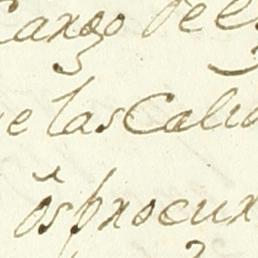 Cargo de el
e las Calid
os procur